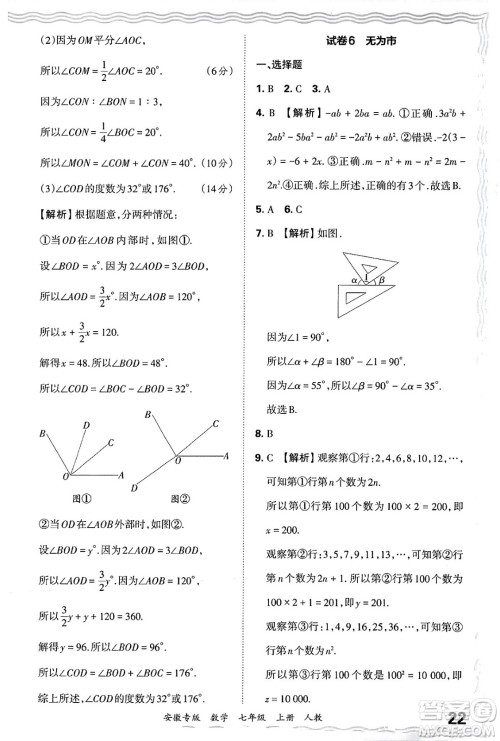 (2)因为OM平分∠AOC,
所以∠COM=1/2∠AOC=20°. (6分)
因为∠CON:∠BON=1:3,
所以∠CON=1/4∠BOC=20°.
所以∠MON=∠COM+∠CON=40°. (10分)
(3)∠COD的度数为32°或176°. (14分)
【解析】根据题意,分两种情况:
①当OD在∠AOB内部时,如图①.
设∠BOD=x°.
所以∠AOD=3/2x°.
因为∠BOD+∠AOD=∠AOB=120°,
所以x+3/2x=120.
解得x=48.所以∠BOD=48°.
所以∠COD=∠BOC-∠BOD=32°.
B
D
C
O
A
图①
B
C
O
A
D
图②
②当OD在∠AOB外部时,如图②.
设∠BOD=y°.所以∠AOD=3/2y°.
因为∠BOD+∠AOD+∠AOB=360°,
∠AOB=120°,
所以3/2y+y+120=360.
解得y=96.所以∠BOD=96°.
所以∠COD=∠BOD+∠BOC=176°.
综上所述,∠COD的度数为32°或176°.
试卷6 无为市
一、选择题
1. B 2. C 3. A
4. B 【解析】-ab+2ba=ab.①正确.3a²b+
2ab²-5ba²-2ab²=-2a²b.②错误.-2(3-
x)=-6+2x.③正确.m-n²-m-n²=
-2n².④正确.综上所述,正确的有①③④.
故选B.
5. A 6. C
7. B 【解析】如图.
α
1
β
因为∠1=90°,
所以∠α+∠β=180°-∠1=90°.
因为∠α=55°,所以∠β=90°-∠α=35°.
故选B.
8. B
9. C 【解析】观察第①行:2,4,6,8,10,12,…,
可知第①行第n个数为2n.
所以第①行第100个数为100×2=200,即
x=200.
观察第②行:3,5,7,9,11,13,…,可知第②行
第n个数为2n+1.所以第②行第100个数为
100×2+1=201,即y=201.
观察第③行:1,4,9,16,25,36,…,可知第③
行第n个数为n².
所以第③行第100个数为100²=10 000,即
z=10 000.
安徽专版 数学 七年级 上册 人教
22